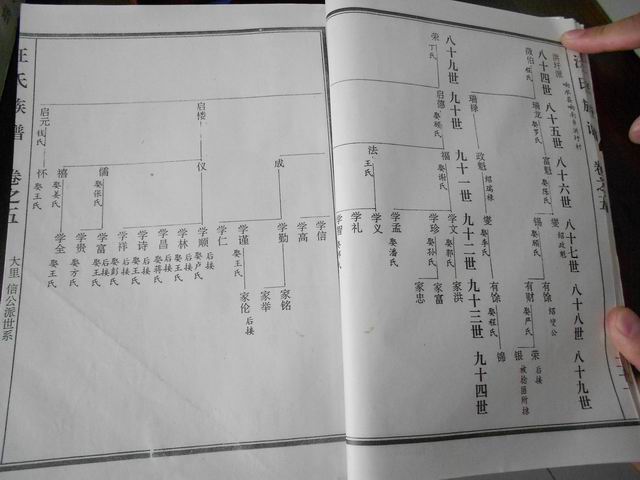 汪氏族谱 卷之五
八十四世 八十五世 八十六世 八十七世 八十八世 八十九世
微伯 娶任氏
瑞龙 娶罗氏
富魁 娶陈氏
燮 绍政魁
锡 娶顾氏
有馀 绍燮公
有财 娶严氏
荣 后接
银
瑞禄
政魁 绍瑞禄
燮 娶李氏
有馀 娶程氏
锦
八十九世 九十世 九十一世 九十二世 九十三世 九十四世
荣 丁氏
启德 娶顾氏
福 娶谢氏
学文 娶郭氏
家洪
学珍 娶孙氏
家富
家忠
学孟 娶潘氏
法 王氏
学义
学礼
学智
汪氏族谱 卷之五 大里 信公派世系
学信
学高
成
学勤
家铭
家举
学谨 娶王氏
家伦 后接
学仁
启楼
仪
学顺 娶卢氏 后接
学林 娶王氏 后接
学昌 娶蒋氏 后接
学诗 娶王氏 后接
学祥 娶彭氏 后接
儒 娶张氏
学富 娶王氏 后接
学贵 娶方氏
禧 娶姜氏
学全 娶王氏
启元 钱氏
怀 娶王氏